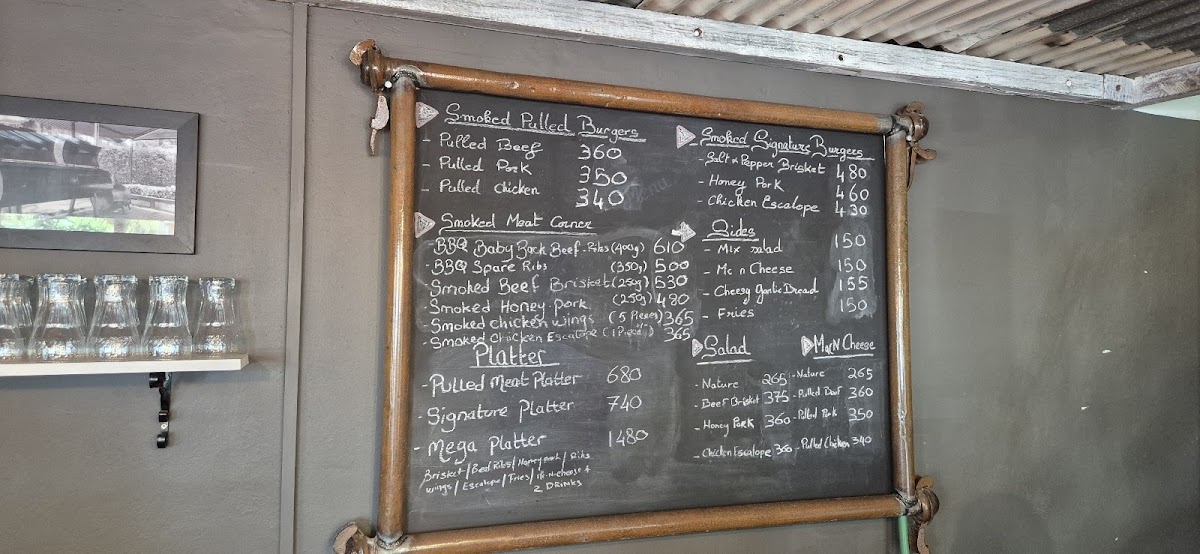 Smoked Pulled Burgers
- Pulled Beef 360
- Pulled Pork 350
- Pulled Chicken 340
Smoked Meat Corner
- BBQ Baby Back Beef-Ribs (400g) 610
- BBQ Spare Ribs (350g) 500
- Smoked Beef Brisket (250g) 530
- Smoked Honey Pork (250g) 480
- Smoked Chicken Wings (5 Pieces) 365
- Smoked Chicken Escalope (1 Piece) 365
Platter
- Pulled Meat Platter 680
- Signature Platter 740
- Mega Platter 1480
Brisket / Beef Ribs / Honey pork / Ribs
wings / Escalope / Fries / M-N-cheese +
2 DRINKS
Smoked Signature Burgers
- Salt & Pepper Brisket 480
- Honey Pork 460
- Chicken Escalope 430
Sides
- Mix salad 150
- Mc n Cheese 150
- Cheesy garlic Bread 155
- Fries 150
Salad
- Nature 265
- Beef Brisket 375
- Honey Pork 360
- Chicken Escalope 360
Mac N Cheese
- Nature 265
- Pulled Beef 360
- Pulled Pork 350
- Pulled Chicken 340